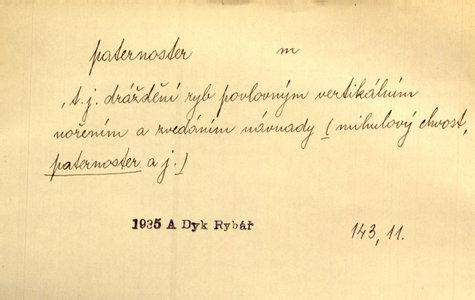 paternoster m
, t. j. dráždění ryb povlovným vertikálním
nořením a zvedáním návnady (mihulový chvost,
paternoster a j.)
1935 A Dyk Rybář 143, 11.